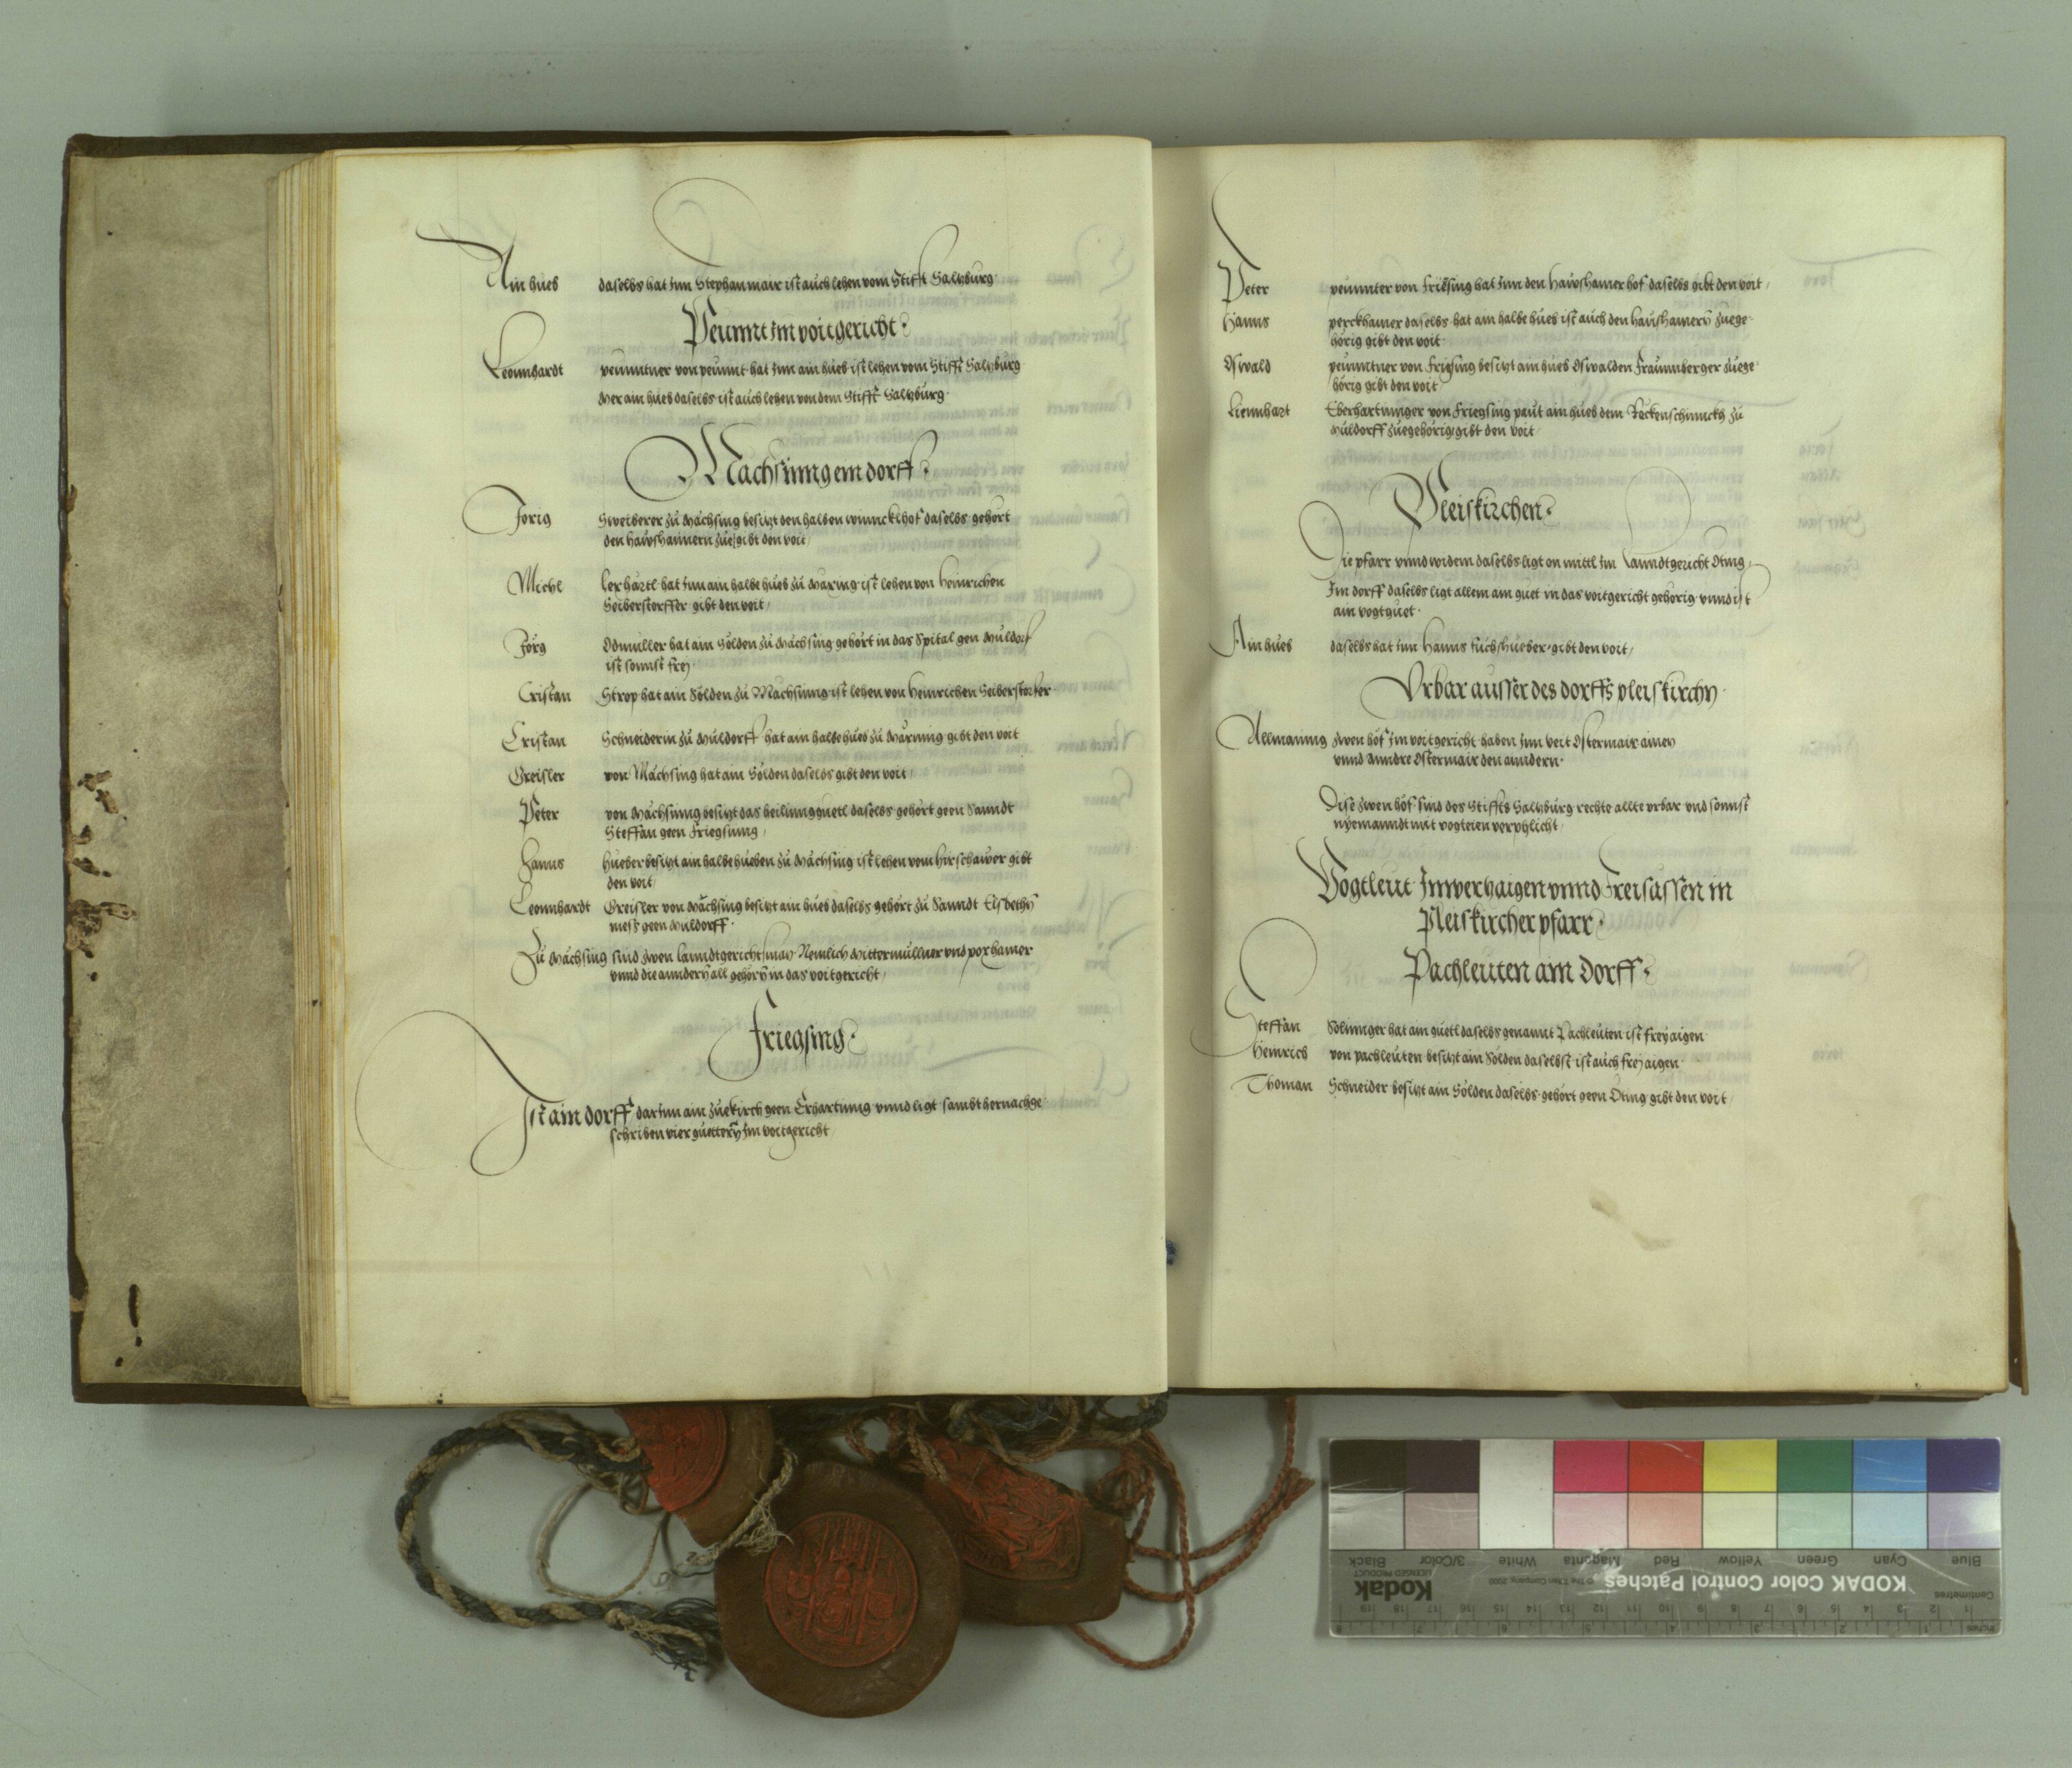 Ain hueb daselbs hat Inn Stephan mair ist auch lehen vom Stifft Saltzburg
Peunnt Im voitgericht
Leonnhardt peunntner von peunnt hat Inn ain hueb ist lehen vom Stifft Saltzburg
Mer ain hueb daselbs ist auch lehen von dem Stifft Saltzburg
Mächsinng ein dorff
Jorig Sweiberer zu Mächsing besitzt den halben winncklhof daselbs gehört
den hawshaimern zue gibt den voit
Michl Lerhärtl hat Inn ain halbe hueb zu Märing ist lehen von Heinrichen
Seiberstorffer gibt den voit
Jörg Ödmüller hat ain Sölden zu Mächsing gehört in das Spital gen Müldorf
ist sonnst frey
Cristan Strop hat ain Sölden zu Mächsinng ist lehen von Heinrichen Seiberstorfer
Cristan Schneiderin zu Müldorff hat ain halbe hueb zu Märning gibt den voit
Greisler von Mächsing hat ain Sölden daselbs gibt den voit
Peter von Mächsinng besitzt das heilinng guetl daselbs gehört geen Sanndt
Steffan geen Friegsinng
Hanns hueber besitzt ain halbe hueben zu Mächsing ist lehen vom hirschawer gibt
den voit
Leonnhardt Greisler von Mächsing besitzt ain hueb daselbs gehört zu Sanndt Elsbethn
mess geen Müldorff
Zu Mächsing sind zwen lanndtgericht man Nemlich Mittermüllner vnd porhamer
vnnd die anndern all gehörn in das voitgericht
Friegsing
Ist ain dorff darInn ain zuekirch geen Erhartinng vnnd ligt sambt hernachge
schriben vier guettern Im voitgericht
Peter peunnter von Friesing hat Inn den Hawshamer hof daselbs gibt den voit
Hanns perckhamer daselbs hat ain halbe hueb ist auch den haushamern zuege
hörig gibt den voit
Oswald peunntner von Friesing besitzt ain hueb Oswalden Fraunnberger zuege
hörig gibt den voit
Liennhart Eberhartinnger von Friegsing paut ain hueb dem Reckenschinnckh zu
Müldorff zuegehörig gibt den voit
Pleiskirchen
Die pfarr vnnd widem daselbs ligt on mittl Im Lanndtgericht Öting
Im dorff daselbs ligt allein ain guet in das voitgericht gehörig vnnd ist
ain vogtguet
Ain hueb daselbs hat Inn Hanns fuchshueber gibt den voit
Vrbar ausser des dorffs pleiskirchn
Allmaning zwen höf Im voitgericht haben Inn veit Ostermair ainen
vnnd Anndre Ostermair den anndern
Dise zwen höf sind des Stiffts Saltzburg rechte allte vrbar vnd sonnst
nyemanndt mit vogteien verphlicht
Vogtleut Inwerhaigen vnnd Freisässen in
Pleiskircher pfarr
Pachleiten ain dorff
Steffan Solinnger hat ain guetl daselbs genannt Pachleuten ist frey aigen
Heinrich von pachleuten besitzt ain Sölden daselbst ist auch frey aigen
Thoman Schneider besitzt ain Sölden daselbs gehört geen Öting gibt den voit
Blue Cyan Green Yellow Red Magenta White 3/Color Black
KODAK Color Control Patches
Kodak
LICENSED PRODUCT
© The Tiffen Company, 2000
Centimetres
Inches